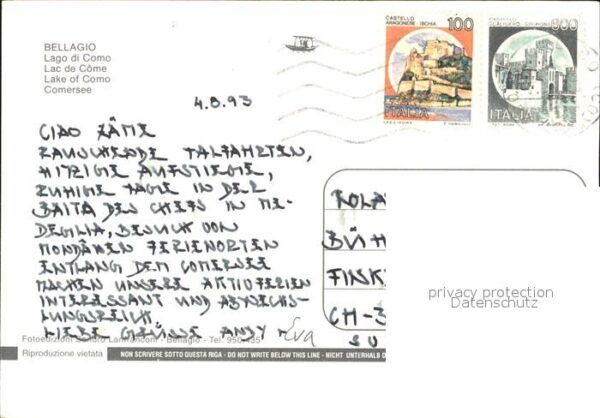 BELLAGIO
Lago di Como
Lac de Côme
Lake of Como
Comersee
CASTELLO
ARAGONESE - ISCHIA
100
ITALIA
CASTELLO
SCALIGERO - SIRMIONE
800
ITALIA
4.8.93
CIAO ZÄME
RAUSCHENDE TALFAHRTEN,
HITZIGE AUFSTIEGE,
RUHIGE TAGE IN DER
BAITA DES CHEFS IN ME-
DEGLIA, BESUCH VON
MONDÄNEN FERIENORTEN
ENTLANG DEM COMERSEE
MACHEN UNSERE AKTIVFERIEN
INTERESSANT UND ABWECHS-
LUNGSREICH
LIEBE GRÜSSE ANDY + Eva
ROLA
BÜH
FINK
CH-3
SU
privacy protection
Datenschutz
Fotoedizioni Sandro Lanfranconi - Bellagio - Tel. 950.435
Riproduzione vietata
NON SCRIVERE SOTTO QUESTA RIGA - DO NOT WRITE BELOW THIS LINE - NICHT UNTERHALB D